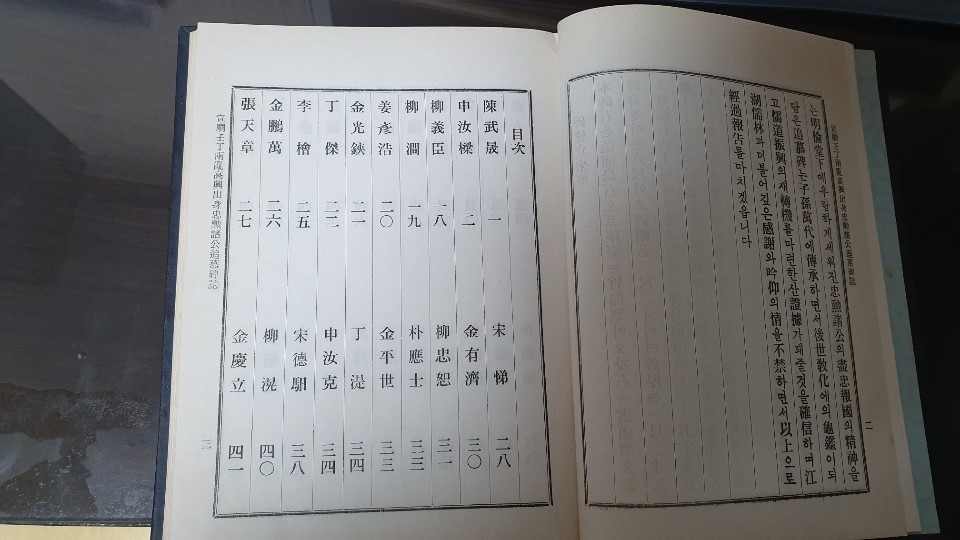 宣廟壬丁兩亂高興出身忠勳諸公追慕碑誌
二
는明倫堂下에우람하게세워진忠勳諸公의盡忠報國의精神을
담은追慕碑는子孫萬代에傳承하면서後世敎化에의龜鑑이되
고儒道振興의새轉機를마련한산證據가돼줄것을確信하며江
湖儒林과더불어깊은感謝와吟仰의情을不禁하면서以上으로
經過報告를마치겠읍니다
目次
陳武晟 一 宋悌 二八
申汝樑 二 金有濟 三〇
柳義臣 一八 柳忠恕 三一
柳濶 一九 朴應士 三三
姜彥浩 二〇 金平世 三三
金光鋏 二一 丁湜 三四
丁傑 二二 申汝克 三四
李檜 二五 宋德馹 三八
金鵬萬 二六 柳滉 四〇
張天章 二七 金慶立 四一
宣廟壬丁兩亂高興出身忠勳諸公追慕碑誌
三